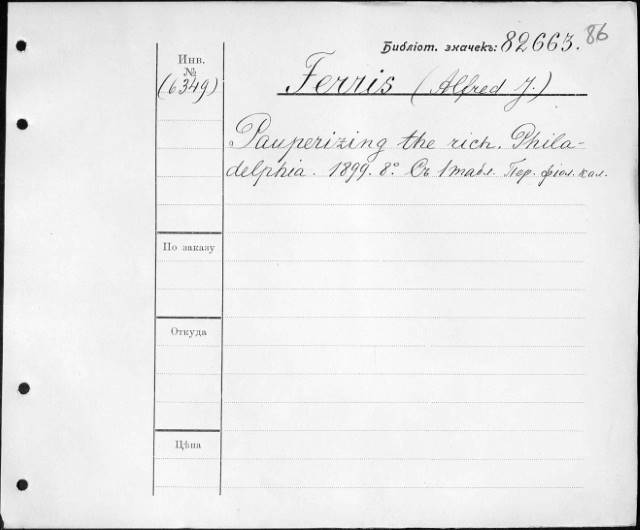 86
Библіот. значекъ: 82663.
Инв.
№
(6349)
Ferris (Alfred J.)
Pauperizing the rich. Phila-
delphia. 1899. 8°. Съ 1 табл. Пер. фіол. кал.
По заказу
Откуда
Цѣна